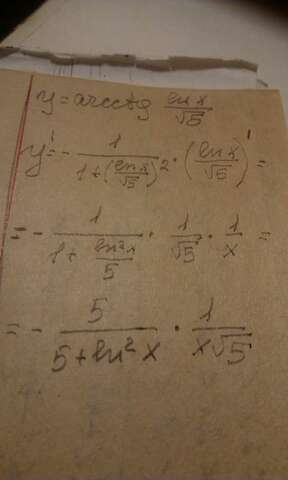 y = arcctg ln x / √5
y' = - 1 / (1 + (ln x / √5)²) · (ln x / √5)' =
= - 1 / (1 + ln²x / 5) · 1 / √5 · 1 / x =
= - 5 / (5 + ln² x) · 1 / (x√5)